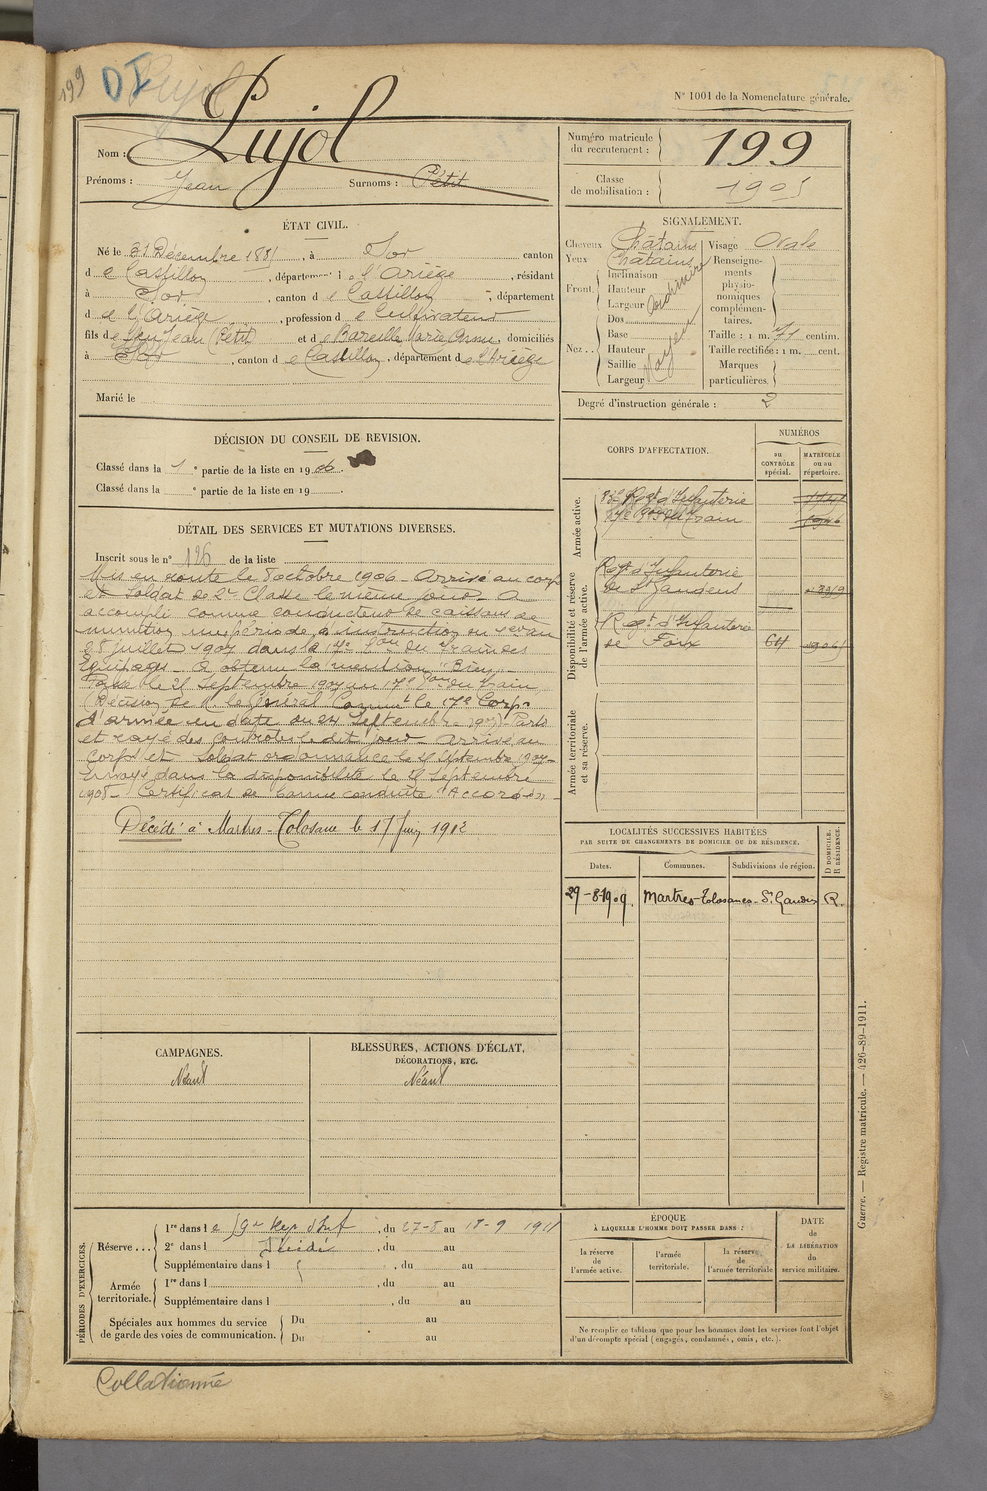 199
DI Pujol
N° 1001 de la Nomenclature générale.
Nom : Pujol
Prénoms : Jean Surnoms : Pétit
Numéro matricule du recrutement : 199
Classe de mobilisation : 1905
ÉTAT CIVIL.
Né le 31 Décembre 1885, à Sor canton
de Castillon, département de l'Ariège, résidant
à Sor, canton de Castillon, département
de l'Ariège, profession de Cultivateur
fils de feu Jean (Pétit) et de Bareille Marie Anne, domiciliés
à Sor, canton de Castillon, département de l'Ariège
Marié le
SIGNALEMENT.
Cheveux Châtains
Yeux Châtains
Front
Inclinaison
Hauteur
Largeur
Nez
Dos
Base
Hauteur
Saillie
Largeur
Moyen
Visage Ovale
Renseignements physionomiques complémentaires.
Taille : 1 m. 71 centim.
Taille rectifiée : 1 m. cent.
Marques particulières.
Degré d'instruction générale : 2
DÉCISION DU CONSEIL DE REVISION.
Classé dans la 1e partie de la liste en 1906.
Classé dans la e partie de la liste en 19
DÉTAIL DES SERVICES ET MUTATIONS DIVERSES.
Inscrit sous le n° 126 de la liste
Mis en route le 8 octobre 1906 - Arrivé au corps
et Soldat de 2e Classe le même jour. A
accompli comme conducteur de caissons de
munition une période d'instruction du 1er au
8 juillet 1907 dans le 17e du Train des
Équipages. A obtenu la mention "Bien"
Passé le 25 Septembre 1907 au 17e du Train
(Décision de M. le Général Commt le 17e Corps
d'armée en date du 24 Septembre 1907) Parti
et rayé des contrôles le dit jour - Arrivé au
Corps et Soldat ordonnance le 25 Septembre 1907
Envoyé dans la disponibilité le 25 Septembre
1908 - Certificat de bonne conduite "Accordé"
Décédé à Martres-Tolosane le 17 Juin 1912
CORPS D'AFFECTATION.
NUMÉROS
au CONTRÔLE spécial.
MATRICULE ou au répertoire.
Armée active.
Regt d'Infanterie
17e du Train
Disponibilité et réserve de l'armée active.
Regt d'Infanterie
de St Gaudens
Regt d'Infanterie
de Foix 64
Armée territoriale et sa réserve.
LOCALITÉS SUCCESSIVES HABITÉES
PAR SUITE DE CHANGEMENTS DE DOMICILE OU DE RÉSIDENCE.
Dates. Communes. Subdivisions de région. D DOMICILE. R RÉSIDENCE.
29-8-1909. Martres-Tolosanes - St Gaudens R.
CAMPAGNES.
Néant
BLESSURES, ACTIONS D'ÉCLAT,
DÉCORATIONS, ETC.
Néant
PÉRIODES D'EXERCICES.
Réserve ...
1re dans le Reg d'Inf, du 27-8 au 18-9 1911
2e dans l Décédé, du au
Supplémentaire dans l , du au
Armée territoriale.
1re dans l , du au
Supplémentaire dans l , du au
Spéciales aux hommes du service de garde des voies de communication.
Du au
Du au
ÉPOQUE
À LAQUELLE L'HOMME DOIT PASSER DANS :
la réserve de l'armée active.
l'armée territoriale.
la réserve de l'armée territoriale
DATE de LA LIBÉRATION du service militaire.
Ne remplir ce tableau que pour les hommes dont les services font l'objet
d'un décompte spécial (engagés, condamnés, omis, etc.).
Guerre. — Registre matricule. — 426-89-1911.
Collationné